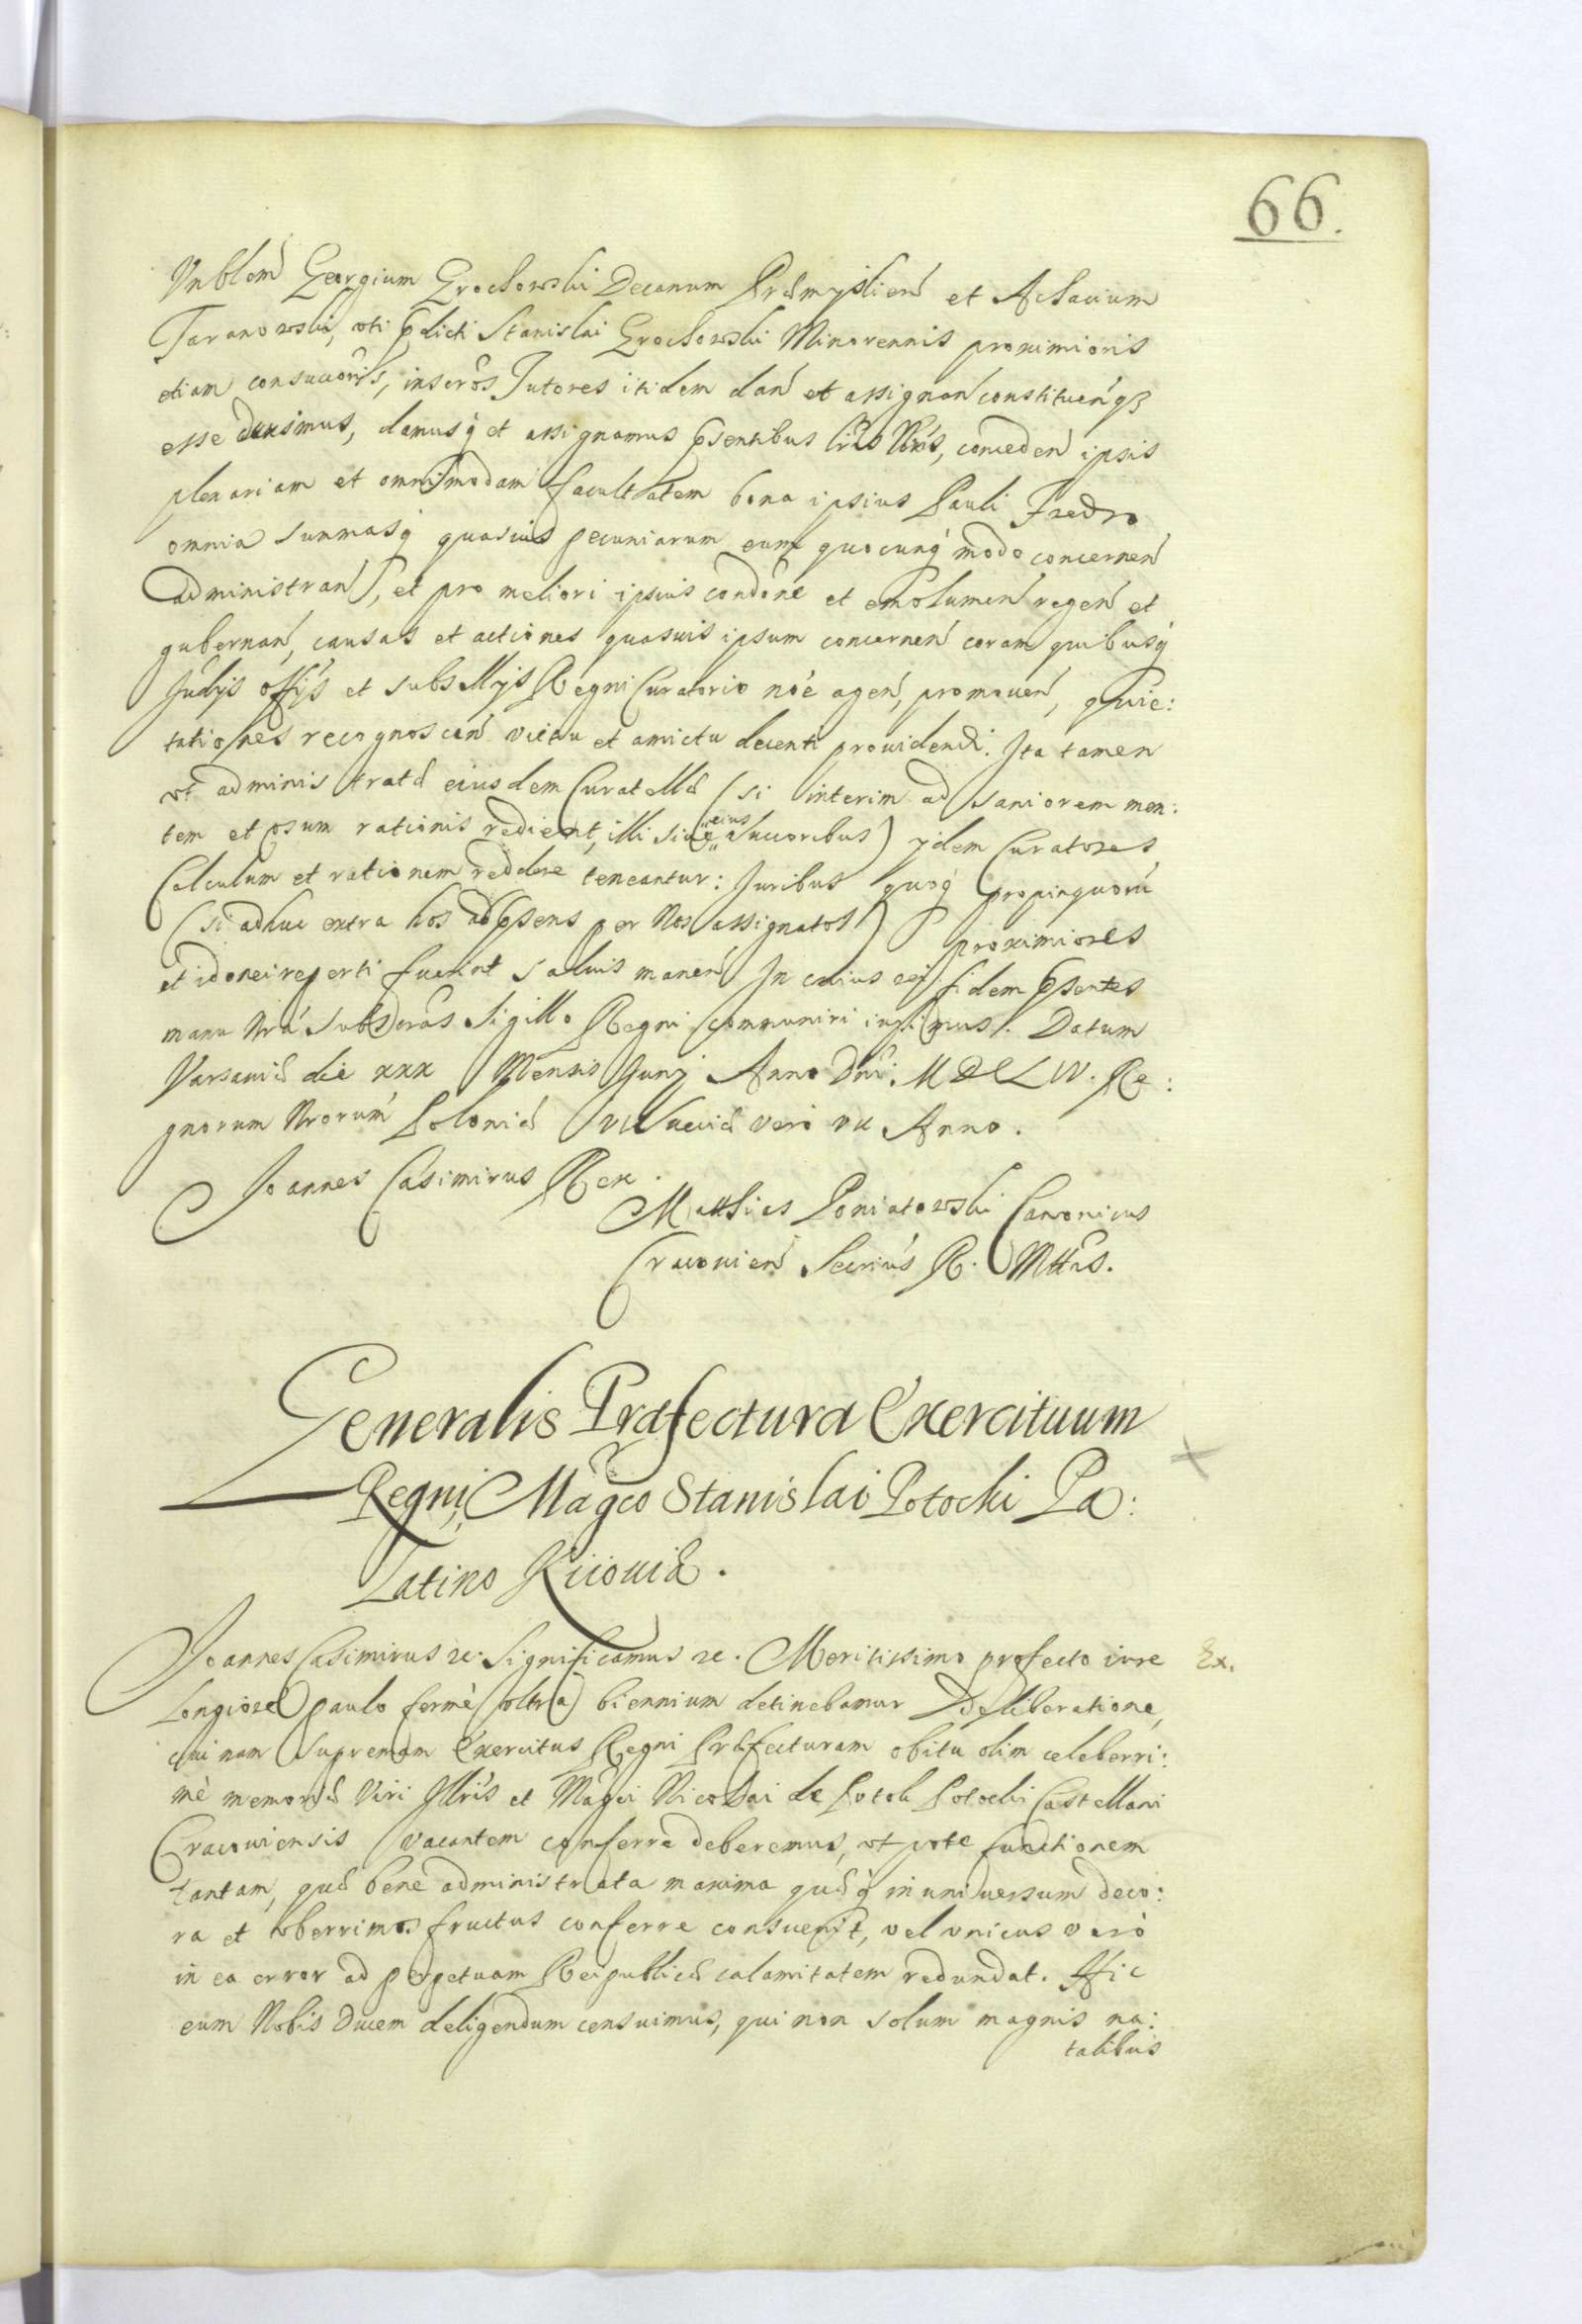 66.
Vnblem̄ Georgium Grochowski Decanum Præmyslien̄ et Achacium
Taranowski, vti p̄dicti Stanislai Grochowski Minorennis proximioris
etiam consuccōris, inscr̄os Tutores itidem dan̄ et assignan̄ constituen̄q3
esse duximus, damusq́ et assignamus p̄sentibus Lris Nris, conceden̄ ipsis
plenariam et omnimodam facultatem bona ipsius Pauli Fredro
omnia summasq́ quasuis pecuniarum eum quocunq́ modo concernen̄
administran̄, et pro meliori ipsius condōne et emolumen̄ regen̄ et
gubernan̄, causas et actiones quasuis ipsum concernen̄ coram quibusq́
Judijs offijs et subsellijs Regni Curatorio nōe agen̄, promouen̄, quie:
tationes recognoscen̄ victu et amictu decenti prouidendi. Ita tamen
vt administratæ eiusdem Curatellæ (si interim ad saniorem men:
tem et vsum rationis redierit, illi siue eius succoribus) ijdem Curatores
Calculum et rationem reddere teneantur: Juribus quoq́ propinquorū
(si adhuc extra hos ad p̄sens per Nos assignatos) proximiores
et idonei reperti fuerint saluis manen̄ In cuius rei fidem p̄sentes
manu Nrá subscr̄as Sigillo Regni communiri iussimus. Datum
Varsauiæ die xxx Mensis Junij Anno Dni: MDCLIV. Re:
gnorum Nrorum Poloniæ VI Sueciæ vero VII Anno.
Joannes Casimirus Rex.
Matthias Poniatowski Canonicus
Cracouien̄ Secrius R. Mttis.
Generalis Præfectura Exercituum
Regni, Magco Stanislai Potocki Pa:
Latino Kiiouiæ.
Joannes Casimirus &c. Significamus &c. Meritissimo profecto iure
Ex.
Longiore paulo fermè vltra biennium detinebamur Deliberatione,
cui nam Supremam Exercitus Regni Præfecturam obitu olim celeberri:
mè memoriæ Viri Jllris et Magci Nicolai de Potok Potocki Castellani
Cracouiensis vacantem conferre deberemus, vt pote functionem
tantam, quæ bene administrata maxima quæq́ in vniuersum deco:
ra et vberrimos fructus conferre consueuit, vel vnicus verò
in ea error ad perpetuam Reipublicæ calamitatem redundat. Hic
eum Nobis Ducem deligendum censuimus, qui non solum magnis na:
talibus